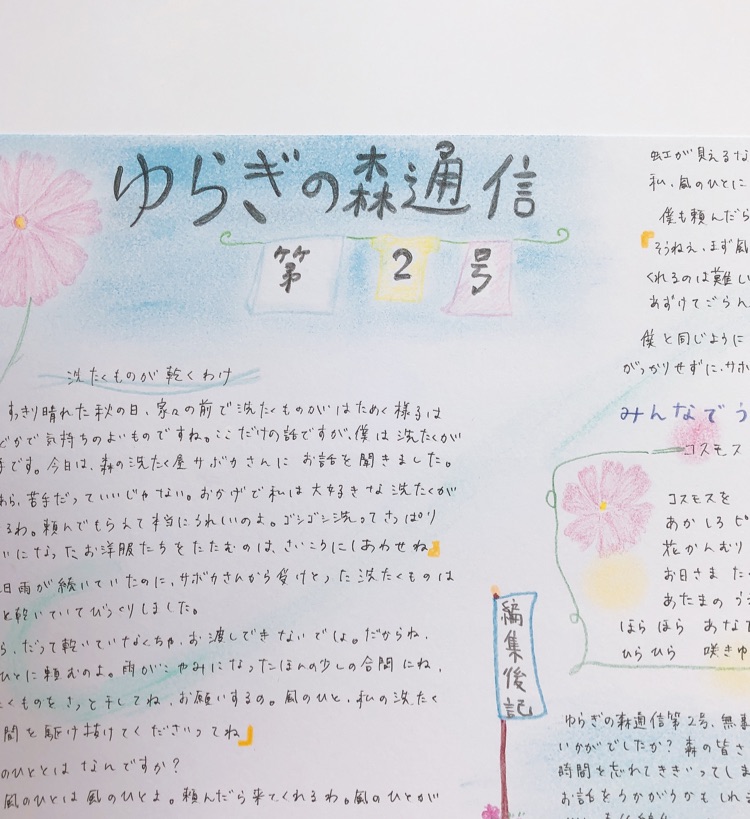 ゆらぎの森通信
第2号
洗たくものが乾くわけ
すっきり晴れた秋の日、家々の前で洗たくものがはためく様子は
どかで気持ちのよいものですね。ここだけの話ですが、僕は洗たくが
手です。今日は、森の洗たく屋サボカさんに お話を聞きました。
あら、苦手だっていいじゃない。おかげで私は大好きな洗たくが
るわ。頼んでもらえて本当にうれしいのよ。ゴシゴシ洗ってさっぱり
いになったお洋服たちをたたむのは、さいこうにしあわせね」
日雨が続いていたのに、サボカさんから受けとった洗たくものは
と乾いていてびっくりしました。
ら、だって乾いていなくちゃ、お渡しできないでしょ。だからね、
ひとに頼むのよ。雨がこやみになったほんの少しの合間にね、
くものをさっと干してね、お願いするの。風のひと、私の洗たく
間を駆け抜けてくださいってね」
のひととは なんですか?
風のひとは風のひとよ。頼んだら来てくれるわ。風のひとが
虹が見えるな
私、風のひとに
僕も頼んだら
「そうねえ、まず風
くれるのは難しい
あずけてごらん
僕と同じように
がっかりせずに、サボ
みんなでう
コスモス
コスモスを
あか しろ ピ
花かんむり
お日さま た
あたまの う
ほら ほら あなた
ひら ひら 咲きゆ
編集後記
ゆらぎの森通信第2号、無事
いかがでしたか? 森の皆さ
時間を忘れてききいってしま
お話をうかがうかもしれま